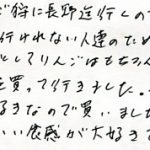 ご狩に長野迄行くの
行けれない人達のため
としてりんごはもちろん
を買って行きました。
好きなので買いました
いい食感が大好きで